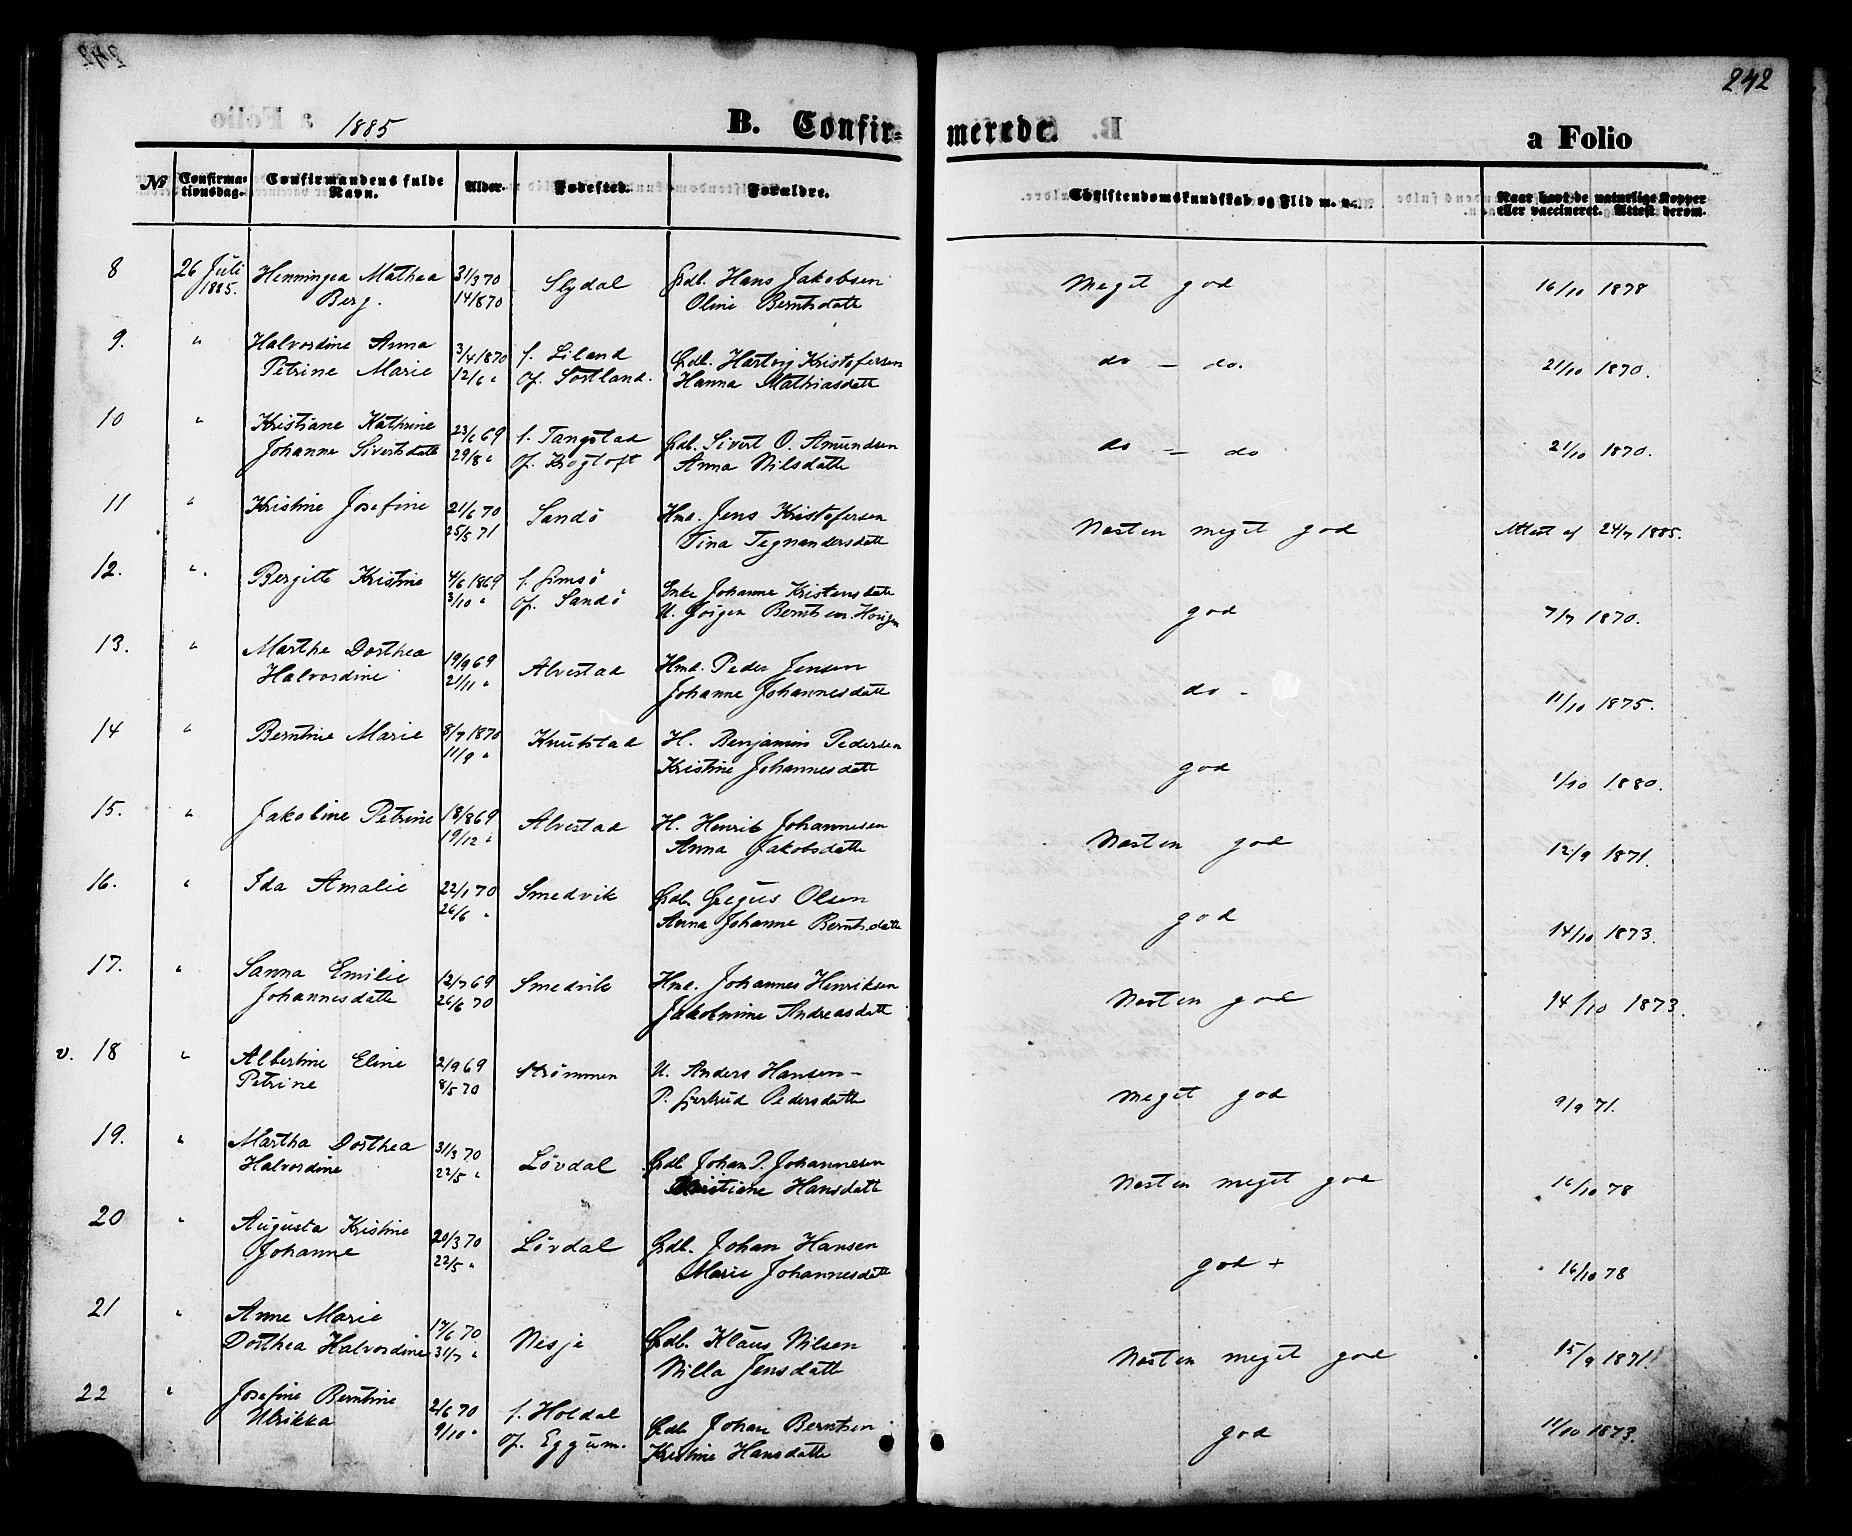 242
1885
B. Confir=
merede.
a Folio
No
Confirma-
tionsdag.
Confirmandens fulde
Navn.
Alder.
Fødested.
Forældre.
Christendomskundskab og Flid m. v.
Naar havt de naturlige Kopper
eller vaccineret. Attest derom.
8 26 Juli 1885. Henningea Mathea Berg. 31/3 70 14/8 70 Slydal Grdb. Hans Jakobsen Oline Berntsdatt Meget god 16/10 1878
9. " Halvordine Anna Petrine Marie 3/4 1870 12/6 " f. Liland Of. Sortland. Grdb. Hartvig Kristofersen Hanna Mathiasdatt do – do. 21/10 1870.
10 " Kristiane Kathrine Johanne Sivertsdatt 23/6 69 29/8 " f. Tangstad Of. Krogtoft Grdb. Sivert O. Amundsen Anna Nilsdatte do – do 21/10 1870.
11 " Kristine Josefine 21/6 70 25/5 71 Sandø Hmd. Jens Kristofersen Tina Tegnandersdatt Næsten meget god Attest af 24/7 1885.
12. " Bergitte Kristine 4/6 1869 3/10 " f. Gimsø Of. Sandø Enke Johanne Kristensdatt U. Jørgen Berntsen Horsjen god 7/7 1870.
13. " Marthe Dorthea Halvordine 19/9 69 21/11 " Alvestad Hmd. Peder Jensen Johanne Johannesdatt do - 11/10 1875.
14 " Berntine Marie 8/7 1870 11/9 " Knutstad H. Benjamin Pedersen Kristine Johannesdatt god 1/10 1880.
15. " Jakobine Petrine 18/8 69 19/12 " Alvestad H. Henrik Johannesen Anna Jakobsdatt Næsten god 12/9 1871.
16. " Ida Amalie 22/1 70 26/6 " Smedvik Grdb. Gregus Olsen Anna Johanne Berntsdatt god 14/10 1873.
17. " Sanna Emilie Johannesdatt 12/7 69 26/6 70 Smedvik Hmd. Johannes Henriksen Jakobmine Andreasdatt Næsten god 14/10 1873.
v. 18 " Albertine Eline Petrine 2/9 69 8/5 70 Strømmen U. Anders Hansen – P. Gjertrud Pedersdatt Meget god 9/9 71.
19. " Martha Dorthea Halvordine 31/3 70 22/5 " Løvdal Grdb Johan P. Johannesen Kristiane Hansdatt Næsten meget god 16/10 78
20 " Augusta Kristine Johanne 20/3 70 22/5 " Løvdal Grdb. Johan Hansen Marie Johannesdatt god + 16/10 78
21 " Anne Marie Dorthea Halvordine 17/6 70 31/7 " Nesje Grdb. Klaus Nilsen Nilla Jensdatt Næsten meget god 15/9 1871.
22 " Josefine Berntine Ulrikka 2/6 70 9/10 " f. Holdal Of. Eggum. Grdb Johan Berntsen Kristine Hansdatt god 11/10 1873.